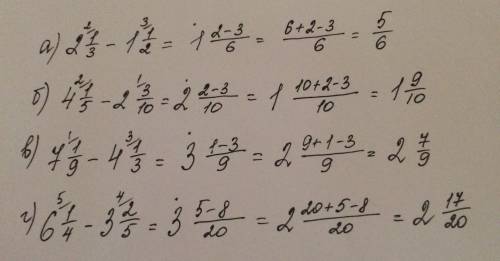 а) 2 ²⁄ 1/3 − 1 ³⁄ 1/2 = 1 (2−3)/6 = (6+2−3)/6 = 5/6
б) 4 ²⁄ 1/5 − 2 ¹⁄ 3/10 = 2 (2−3)/10 = 1 (10+2−3)/10 = 1 9/10
в) 7 ¹⁄ 1/9 − 4 ³⁄ 1/3 = 3 (1−3)/9 = 2 (9+1−3)/9 = 2 7/9
г) 6 ⁵⁄ 1/4 − 3 ⁴⁄ 2/5 = 3 (5−8)/20 = 2 (20+5−8)/20 = 2 17/20